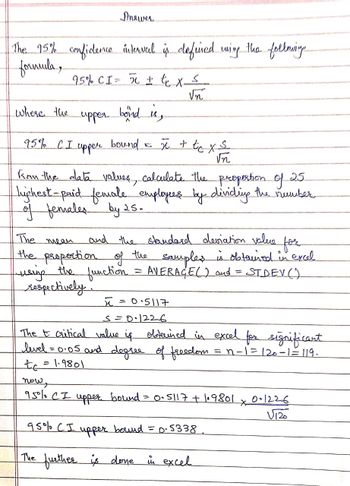 Answer
The 95% confidence interval is defined using the following
formula,
95% CI = x̄ ± tc × s/√n
where the upper bond is,
95% CI upper bound = x̄ + tc × s/√n
From the data values, calculate the proportion of 25
highest-paid female employees by dividing the number
of females by 25.
The mean and the standard deviation value for
the proportion of the samples is obtained in excel
using the function = AVERAGE() and = STDEV()
respectively.
x̄ = 0.5117
s = 0.1226
The t critical value is obtained in excel for significant
level = 0.05 and degree of freedom = n-1 = 120-1 = 119.
tc = 1.9801
now,
95% CI upper bound = 0.5117 + 1.9801 × 0.1226/√120
95% CI upper bound = 0.5338.
The further is done in excel